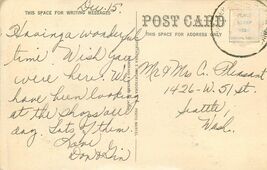 Dec. 15.
THIS SPACE FOR WRITING MESSAGES
POST CARD
THIS SPACE FOR ADDRESS ONLY
Having a wonderful
time. Wish you
were here. We
have been looking
at the shops all
day. Lots of them.
Love
Don & Gin
Mr & Mrs C. Pleasant
1426 - W. 51 st.
Seattle,
Wash.